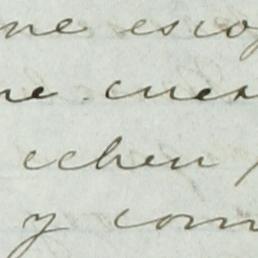 me escog
me cuen
echen
y com